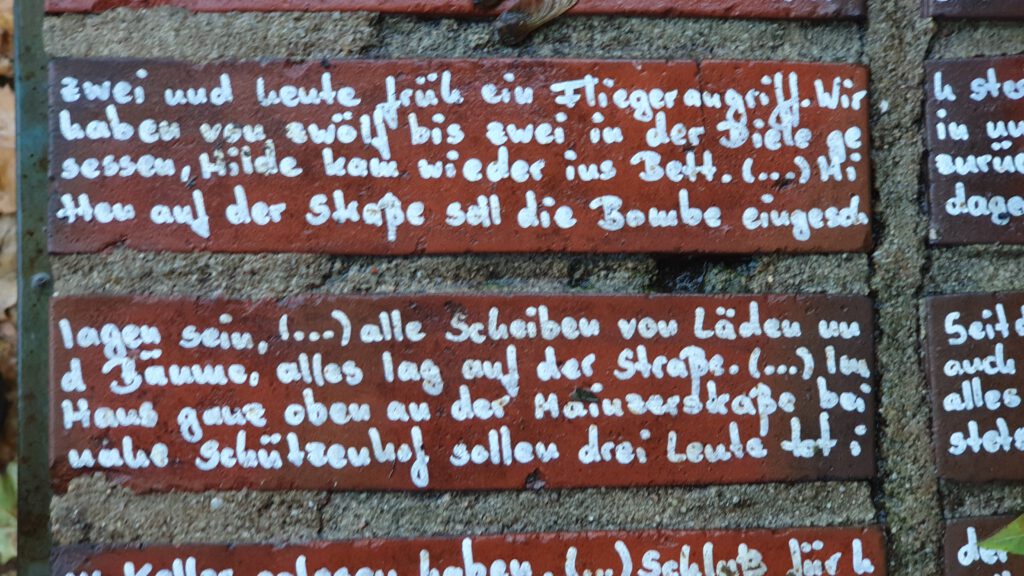 zwei und heute früh ein Fliegerangriff. Wir
haben von zwölf bis zwei in der Diele ge
sessen, Hilde kam wieder ins Bett. (...) Mi
tten auf der Straße soll die Bombe eingesch
lagen sein, (...) alle Scheiben von Läden un
d Bäume, alles lag auf der Straße. (...) Im
Haus ganz oben an der Mainzerstraße bei
nahe Schützenhof sollen drei Leute tot i
m Keller gelegen haben. (...) Schluß für h
h
in un
zurüc
dage
Seit d
auch
alles
stets
der